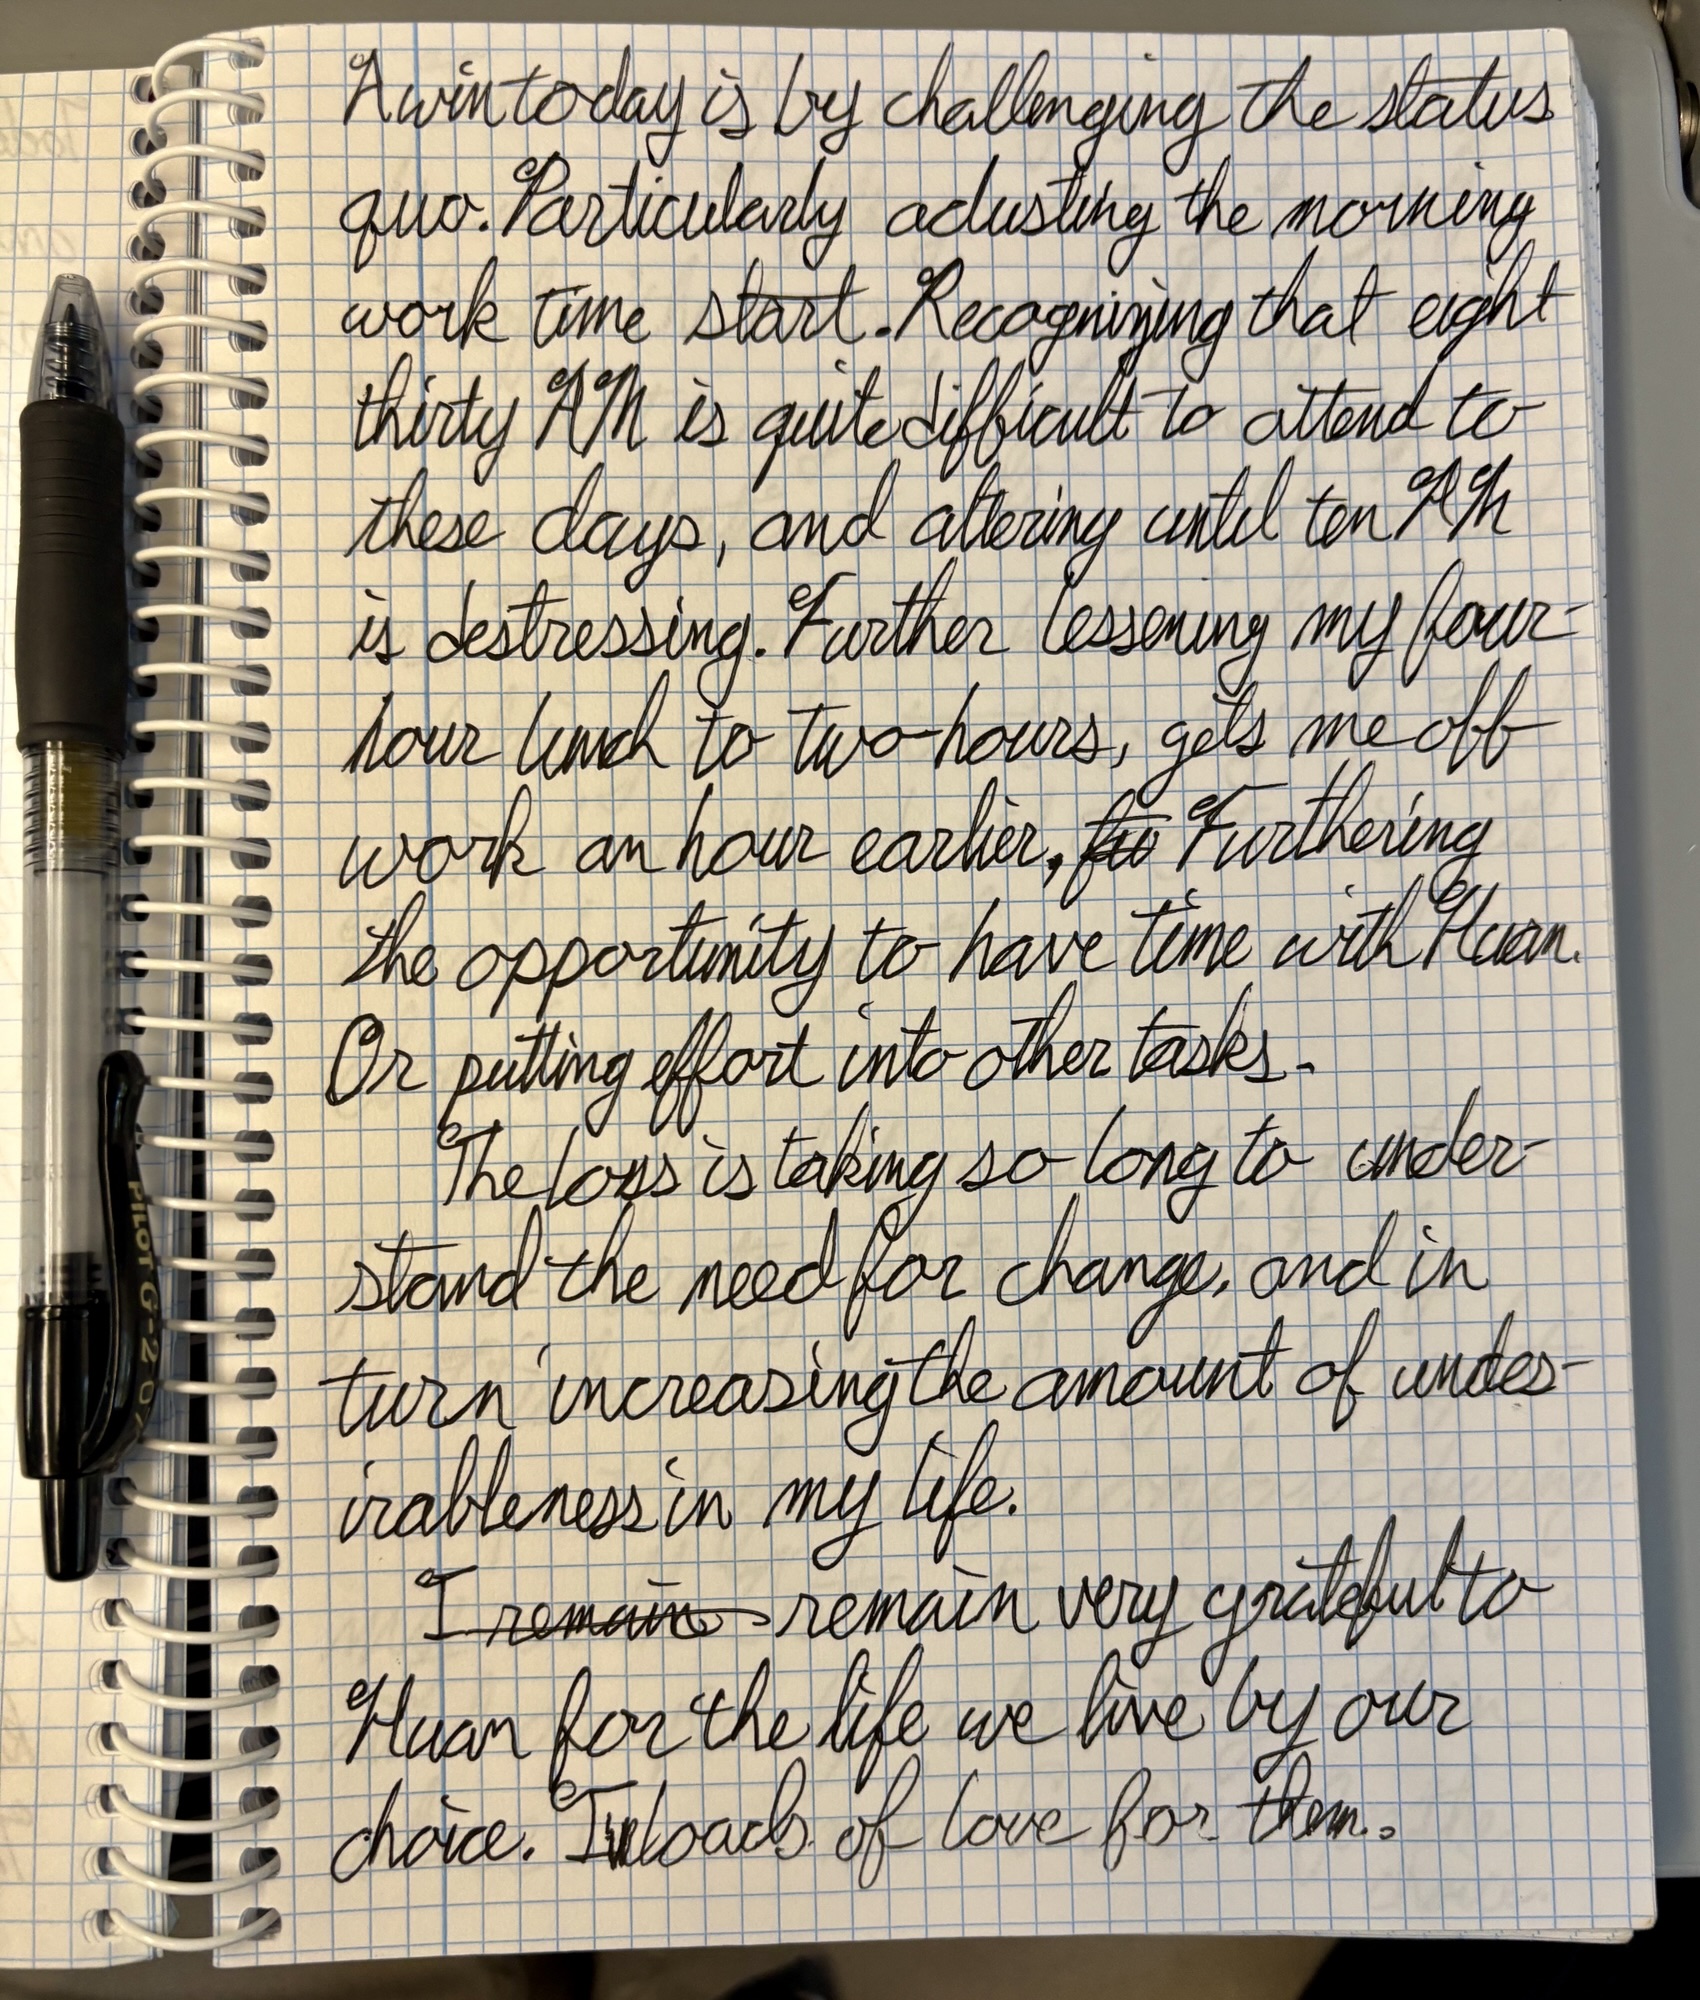 A win today is by challenging the status
quo. Particularly adusting the morning
work time start. Recognizing that eight
thirty AM is quite difficult to attend to
these days, and altering until ten AM
is destressing. Further lessening my four-
hour lunch to two-hours, gets me off
work an hour earlier, Furthering
the opportunity to have time with Huan.
Or putting effort into other tasks.
The loss is taking so long to under-
stand the need for change, and in
turn increasing the amount of undes-
irableness in my life.
I remain remain very grateful to
Huan for the life we live by our
choice. loads of love for them.
PILOT G-2 07